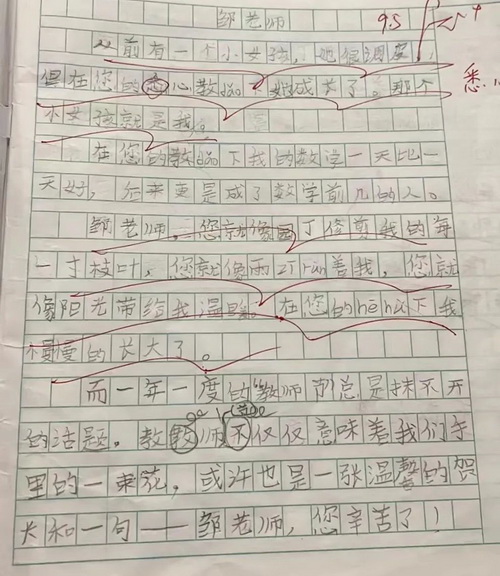 邹老师
95
从前有一个小女孩,她很调皮,
但在您的悉心教导下她成长了。那个
悉
小女孩就是我。
在您的教导下我的数学一天比一
天好,后来更是成了数学前几的人。
邹老师,您就像园丁修剪我的每
一寸枝叶,您就像雨zi rùn着我,您就
像阳光带给我温暖。在您的hē hù下我
慢慢的长大了。
而一年一度的教师节总是抹不开
的话题。教教师不仅仅意味着我们手
里的一束花,或许也是一张温馨的贺
卡和一句——邹老师,您辛苦了!